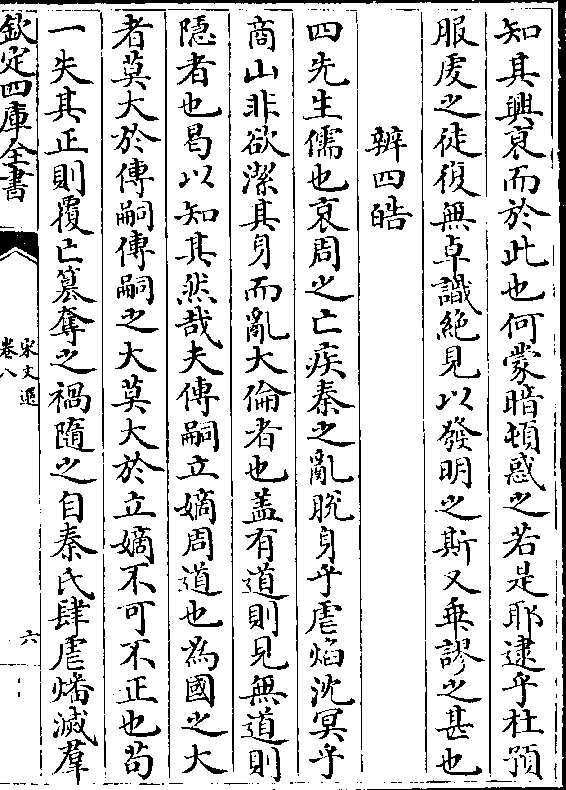 知其興衰而於此也何蒙暗頓惑之若是耶逮乎杜預
服虔之徒復無卓識絶見以發明之斯又乖謬之甚也
辨四皓
四先生儒也哀周之亡疾秦之亂脫身乎虐焰沈冥乎
商山非欲潔其身而亂大倫者也盖有道則見無道則
隱者也曷以知其然哉夫傳嗣立嫡周道也為國之大
者莫大於傳嗣傳嗣之大莫大於立嫡不可不正也苟
一失其正則覆亡簒奪之禍隨之自秦氏肆虐燔滅羣
欽定四庫全書
宋文選
卷八
六